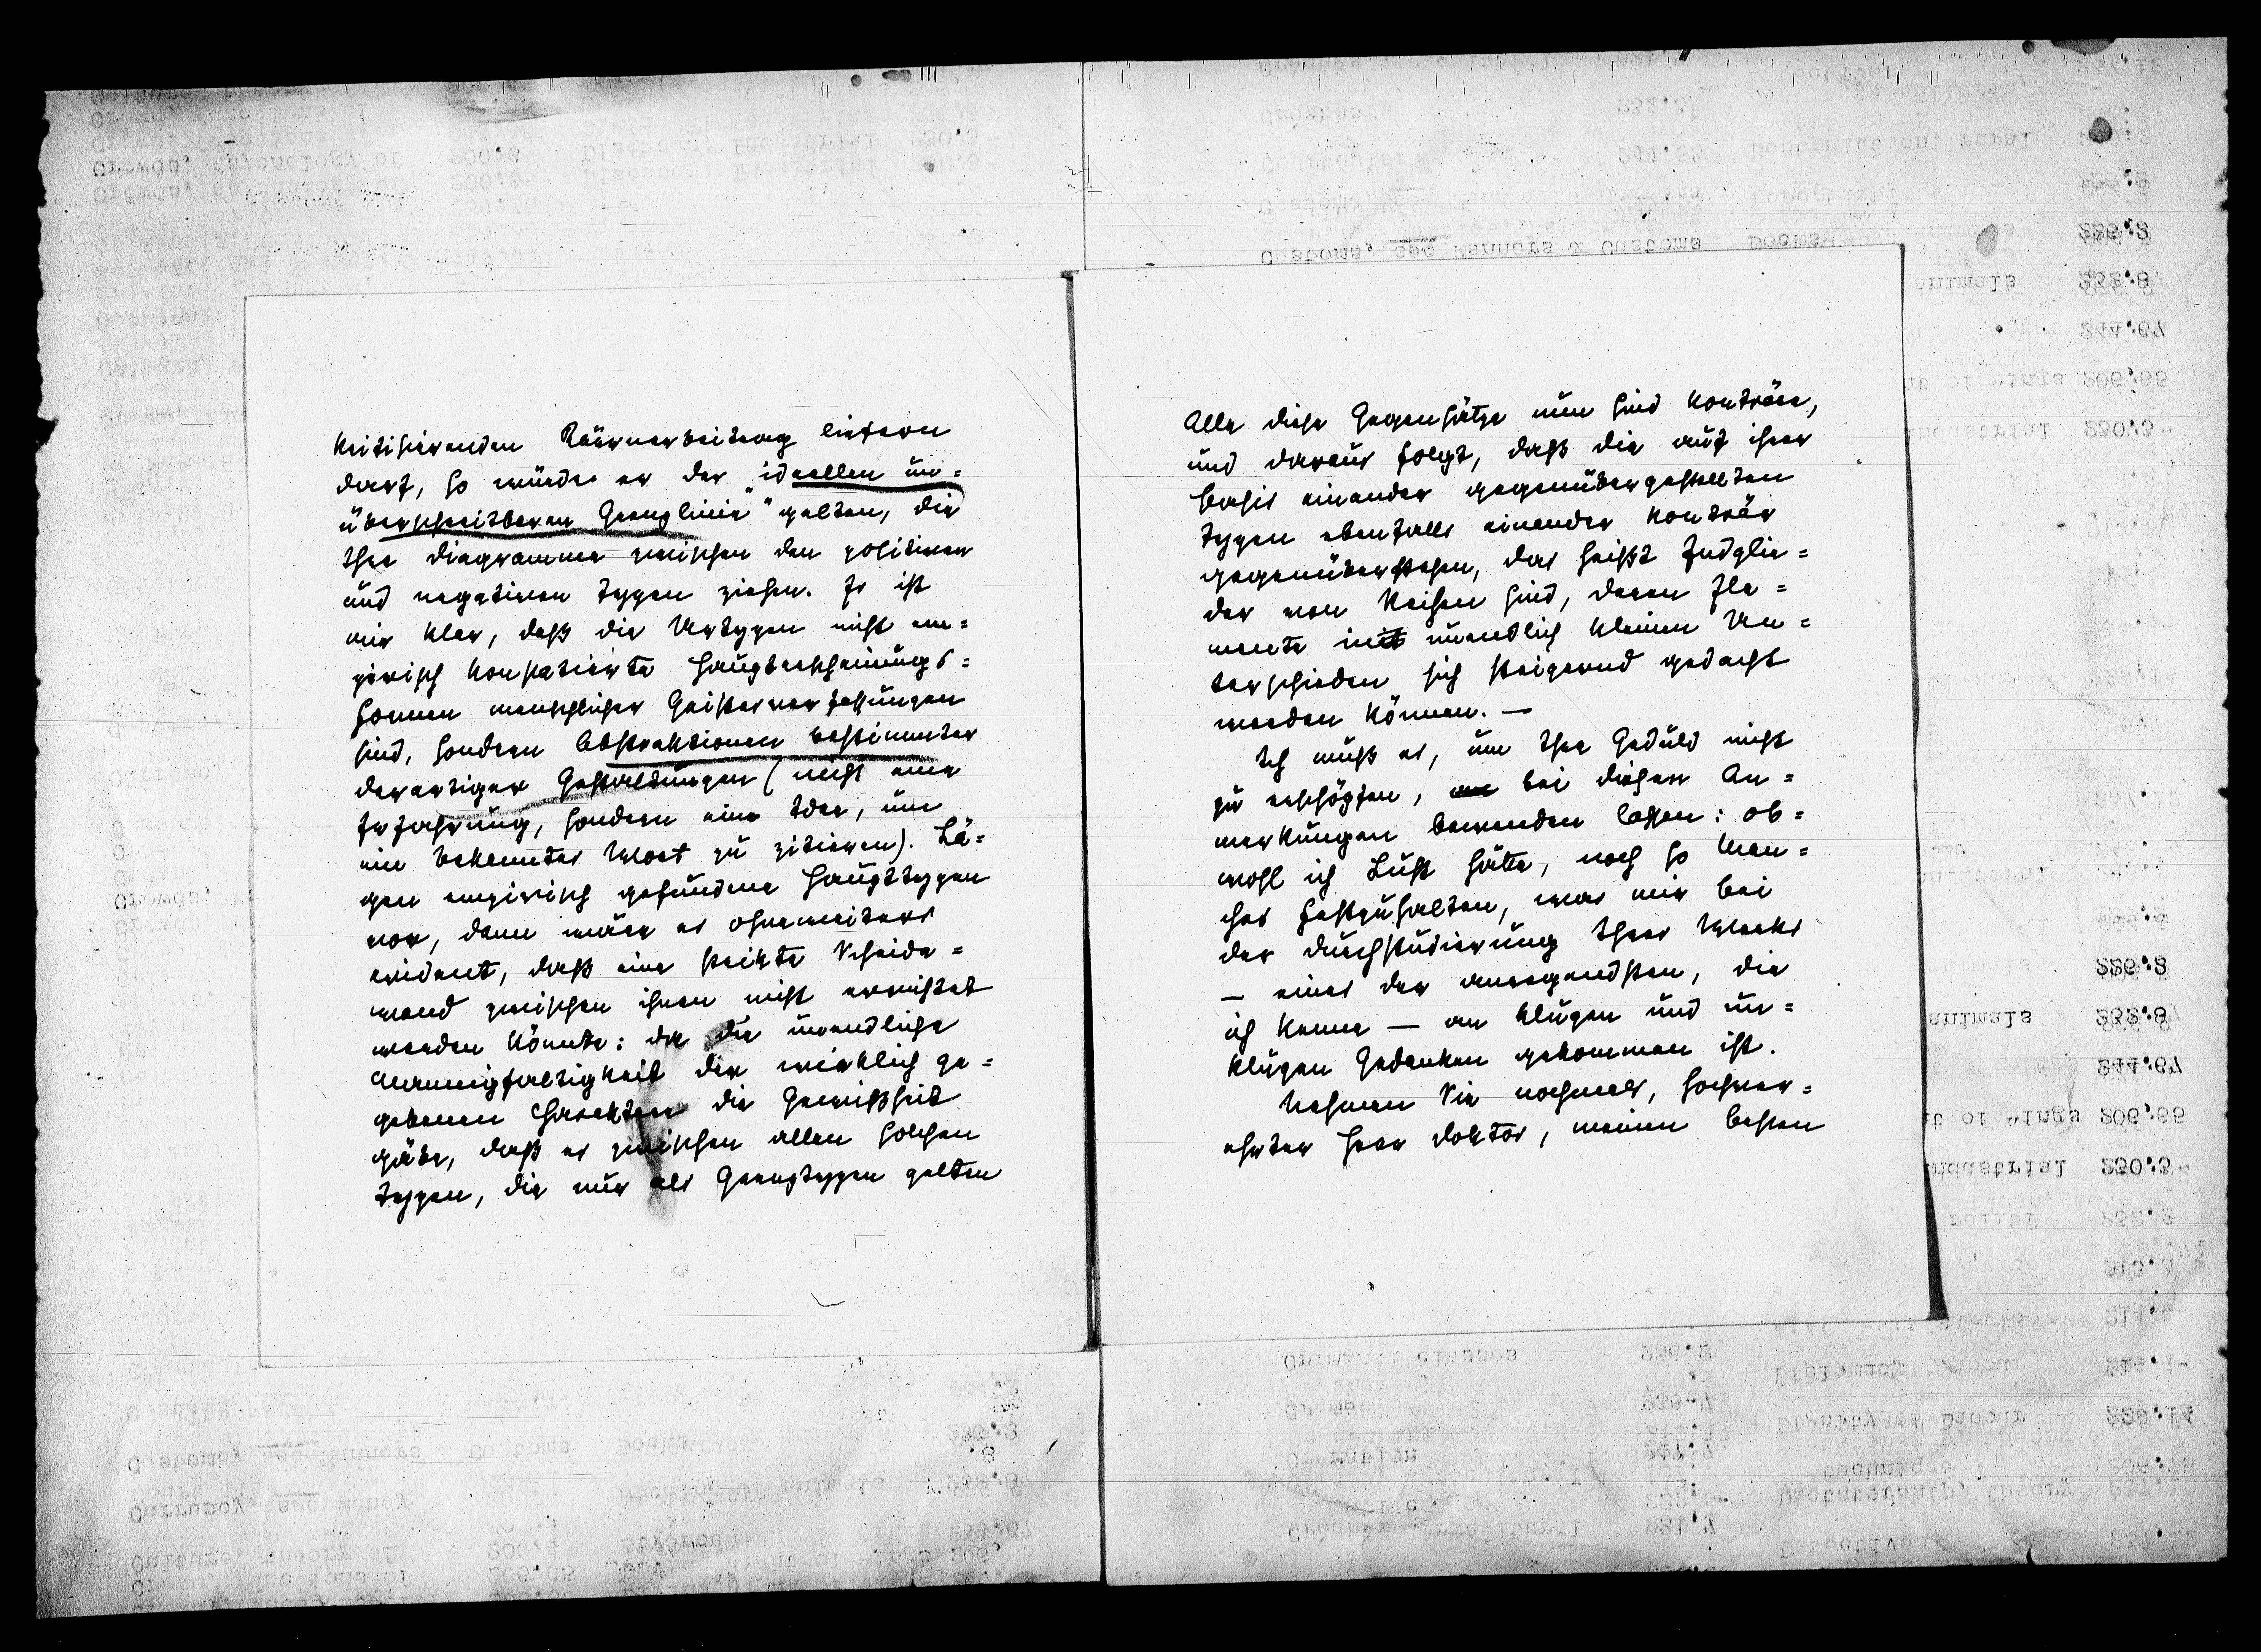 kritisierenden Käärnerbeitrag liefern
darf, so würde er der ideellen un=
überschreitbaren Grenzlinie" gelten, die
Ihre Diagramme zwischen den positiven
und negativen Typen ziehen. Es ist
mir klar, daß die Urtypen nicht em=
pirisch konstatierte Haupterscheinungs=
formen menschlicher Geistesverfassungen
sind, sondern Abstraktionen bestimmter
derartiger Gestaltungen (nicht eine
Erfahrung, sondern eine Idee, um
ein bekanntes Wort zu zitieren). Lä=
gen empirisch gefundene Haupttypen
vor, dann wäre es ohneweiters
evident, daß eine strikte Scheide=
wand zwischen ihnen nicht errichtet
werden könnte: da die unendliche
Mannigfaltigkeit der wirklich ge=
gebenen Charaktere die Gewißheit
gäbe, daß es zwischen allen solchen
Typen, die nur als Grenztypen gelten
Alle diese Gegensätze nun sind konträre,
und daraus folgt, daß die auf ihrer
Basis einander gegenübergestellten
Typen ebenfalls einander konträr
gegenüberstehen, das heißt Endglie=
der von Reihen sind, deren Ele=
mente mit unendlich kleinen Un=
terschieden sich steigernd gedacht
werden können. —
Ich muß es, um Ihre Geduld nicht
zu erschöpfen, bei diesen An=
merkungen bewenden lassen: ob=
wohl ich Lust hätte, noch so Man=
ches festzuhalten, was mir bei
der Durchstudierung Ihres Werks
— eines der anregendsten, die
ich kenne — an klugen und un=
klugen Gedanken gekommen ist.
Nehmen Sie nochmals, hochver=
ehrter Herr Doktor, meinen besten
Customs, see Manners & Customs